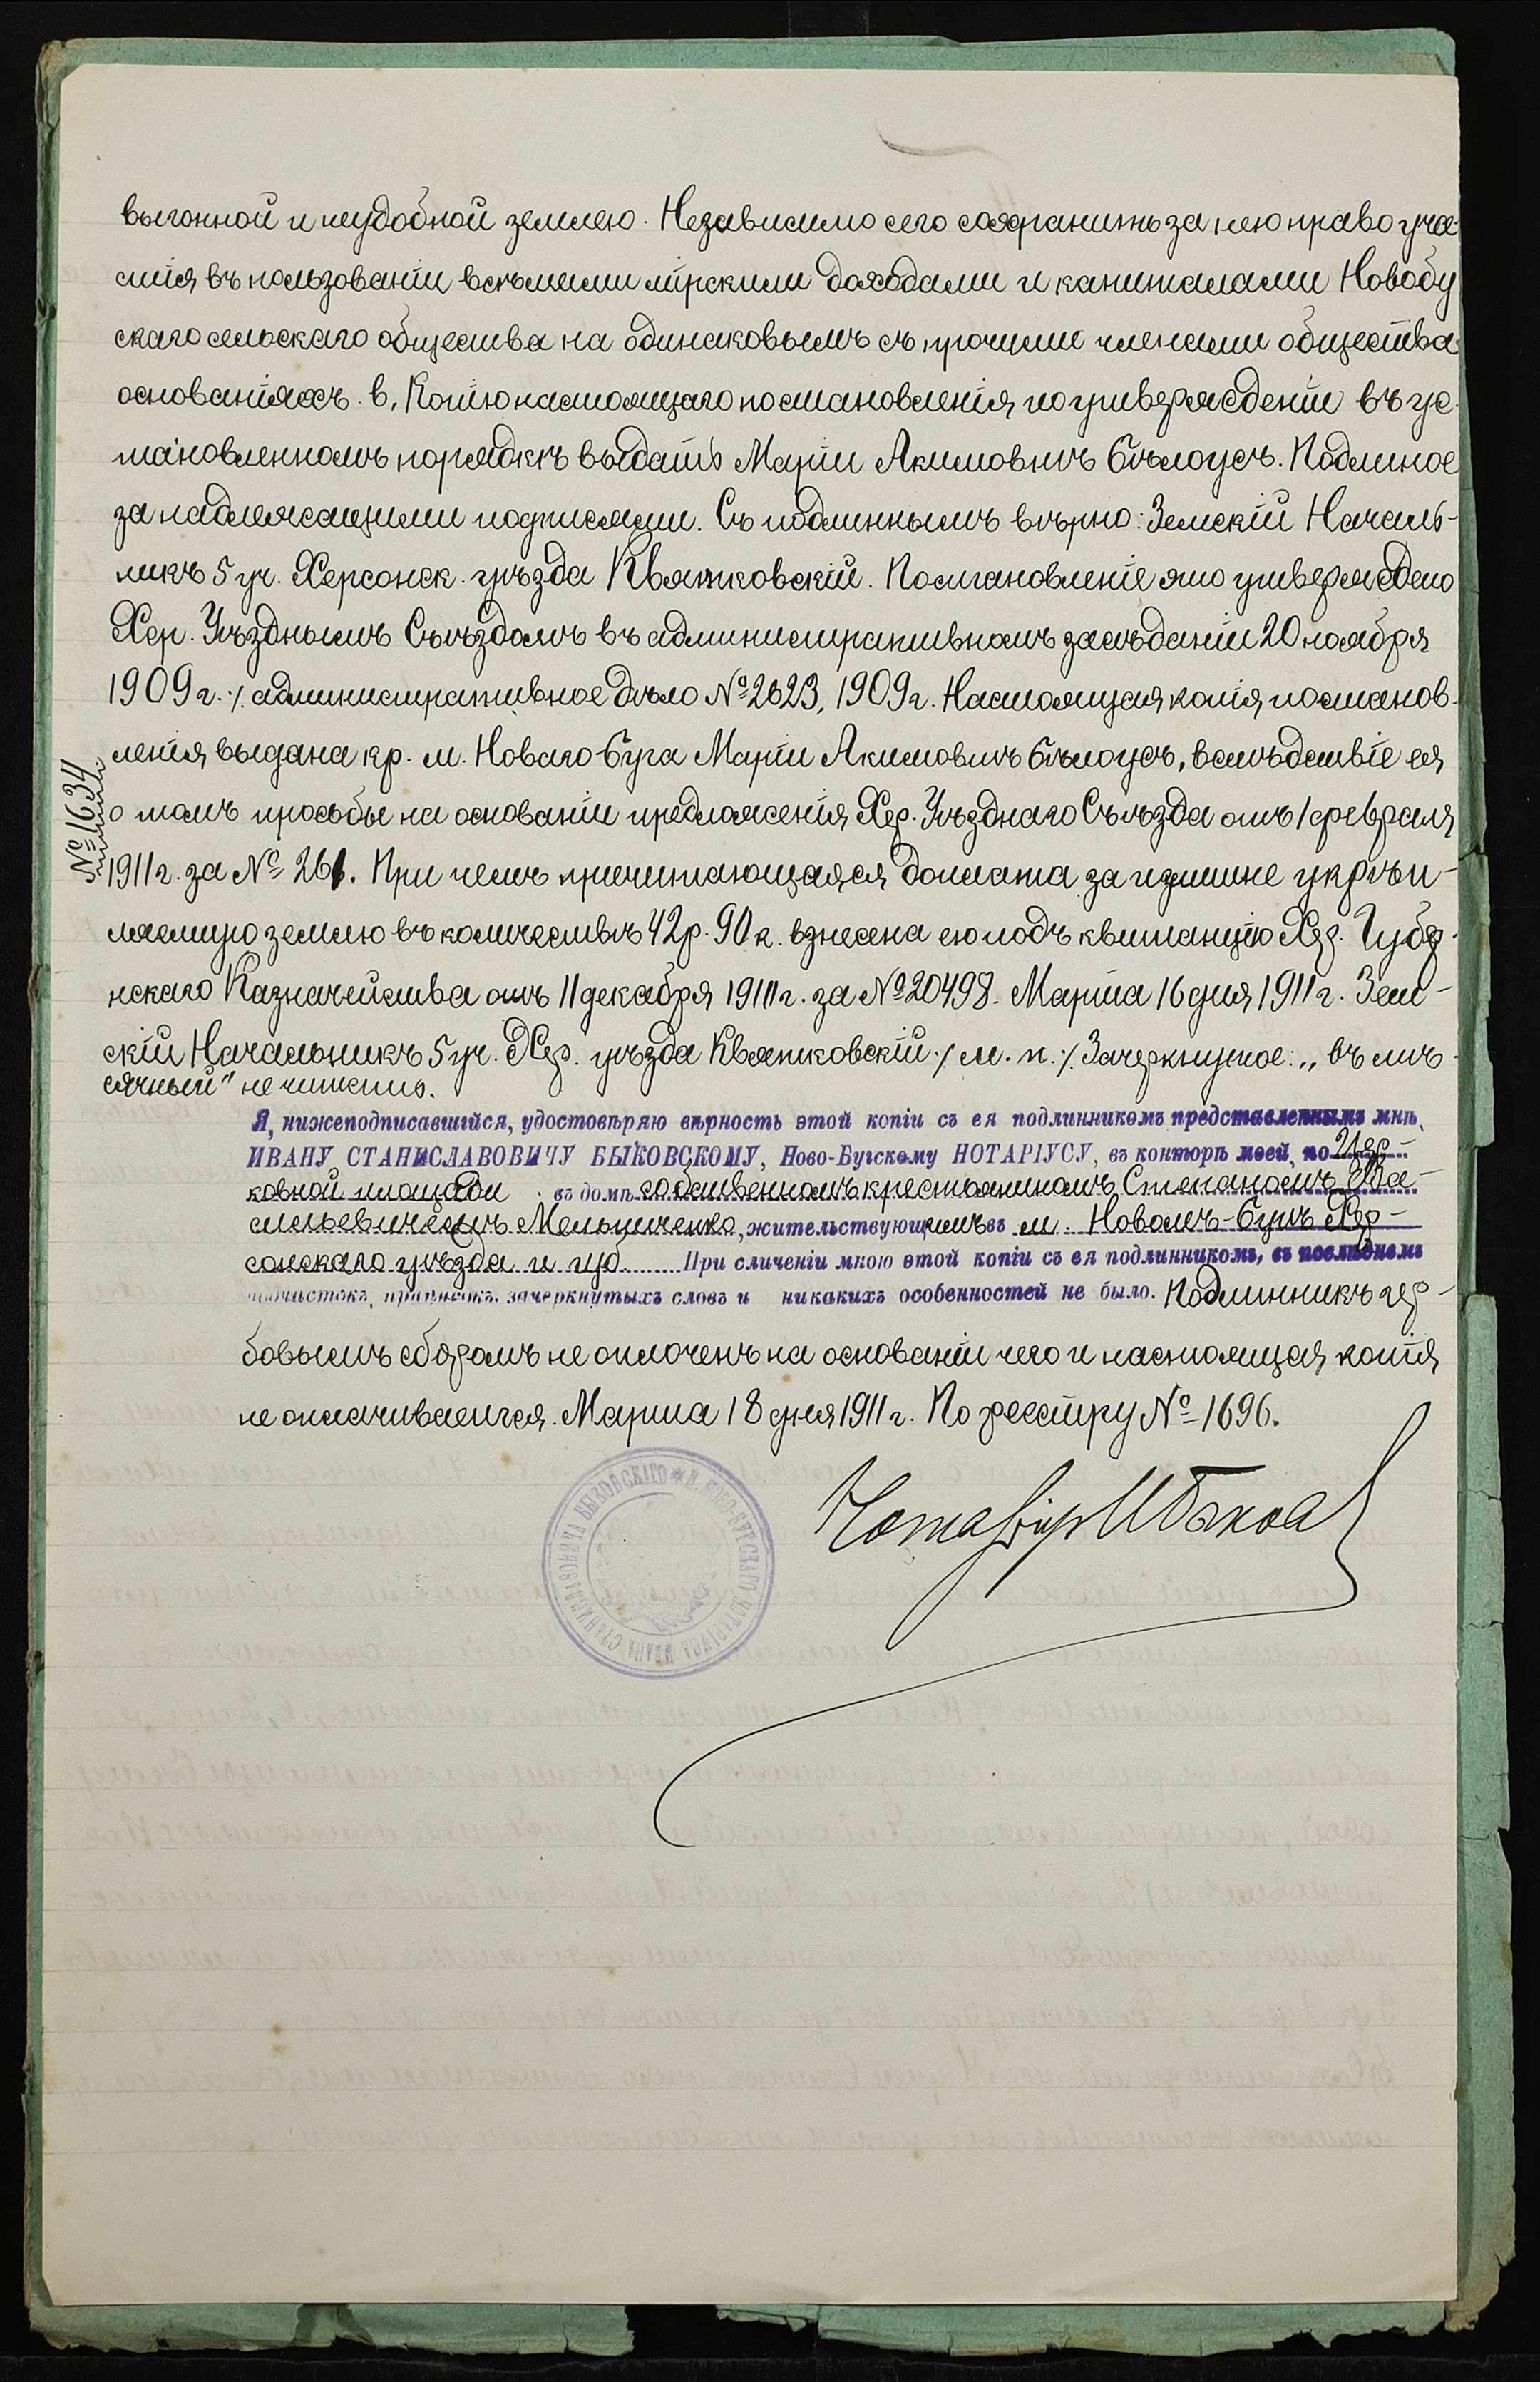 выгонной и неудобной землею. Независимо сего сохранить за нею право уча-
стія въ пользованіи всѣми мірскими доходами и капиталами Новобу
скаго сельскаго общества на одинаковымъ съ прочими членами общества
основаніяхъ. в, Копію настоящаго постановленія по утвержденіи въ ус-
тановленномъ порядкѣ выдать Маріи Акимовнѣ Бѣлоусъ. Подлиное
за надлежащими подписями. Съ подлиннымъ вѣрно: Земскій Началь-
никъ 5 уч. Херсонск. уѣзда Квятковскій. Постановленіе это утверждено
Хер. Уѣзднымъ Съѣздомъ въ административномъ засѣданіи 20 ноября
1909 г. ·/. административное дѣло № 2623, 1909 г. Настоящая копія постанов-
ленія выдана кр. м. Новаго Буга Маріи Акимовнѣ Бѣлоусъ, вслѣдствіе ея
о томъ просьбы на основаніи предложенія Хер. Уѣзднаго Съѣзда отъ 1 февраля
№ 1634
1911 г. за № 261. При чемъ причитающаяся доплата за излишне укрѣп-
ляемую землю въ количествѣ 42 р. 90 к. взнесена ею подъ квитанцію Хер. Губер-
нскаго Казначейства отъ 11 декабря 1910 г. за № 20498. Марта 16 дня 1911 г. Зем-
скій Начальникъ 5 уч. Хер. уѣзда Квятковскій ·/. м. п. ·/. Зачеркнутое: „въ мѣ-
сячный" не читать.
Я, нижеподписавшійся, удостовѣряю вѣрность этой копіи съ ея подлинникомъ представленнымъ мнѣ,
ИВАНУ СТАНИСЛАВОВИЧУ БЫКОВСКОМУ, Ново-Бугскому НОТАРІУСУ, въ конторѣ моей, по Цер-
ковной площади въ домѣ собственномъ крестьяниномъ Степаномъ Ва-
сильевичемъ Мельниченко, жительствующимъ въ м. Новомъ-Бугѣ Хер-
сонскаго уѣзда и губ. При сличеніи мною этой копіи съ ея подлинникомъ, въ послѣднемъ
подчистокъ, приписокъ, зачеркнутыхъ словъ и никакихъ особенностей не было. Подлинникъ гер-
бовымъ сборомъ не оплоченъ на основаніи чего и настоящая копія
не оплачивается. Марта 18 дня 1911 г. По реестру № 1696.
Нотаріусъ И Быков
* Н. НОВО-БУГСКАГО НОТАРІУСА ИВАНА СТАНИСЛАВОВИЧА БЫКОВСКАГО